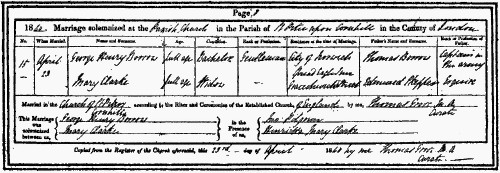 Page 8
1840. Marriage solemnized at the Parish Church in the Parish of St Peter upon Cornhill in the County of London
When Married. Name and Surname. Age Condition. Rank or Profession. Residence at the Time of Marriage. Father's Name and Surname. Rank or Profession of Father.
15 April 23 George Henry Borrow full age Bachelor Gentleman City of Norwich Thomas Borrow Captain in the Army
Mary Clarke full age Widow - Gracechurch Street Edmund Skepper Esquire
Married in the Church of St Peter Cornhill according to the Rites and Ceremonies of the Established Church, of England by me, Thomas Curate
This Marriage was solemnized between us, George Henry Borrow Mary Clarke In the Presence of us, Jno Pilgrim Henrietta Mary Clarke
Copied from the Register of the Church aforesaid, this 23rd day of April 1840 by me Thomas Curate